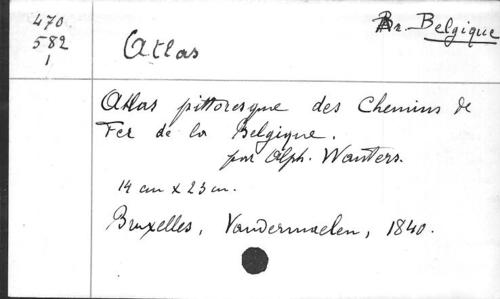 470
582
1
Atlas
Br. Belgique
Atlas pittoresque des Chemins de
Fer de la Belgique.
par Alph. Wauters.
14 cm x 23 cm.
Bruxelles, Vandermaelen, 1840.